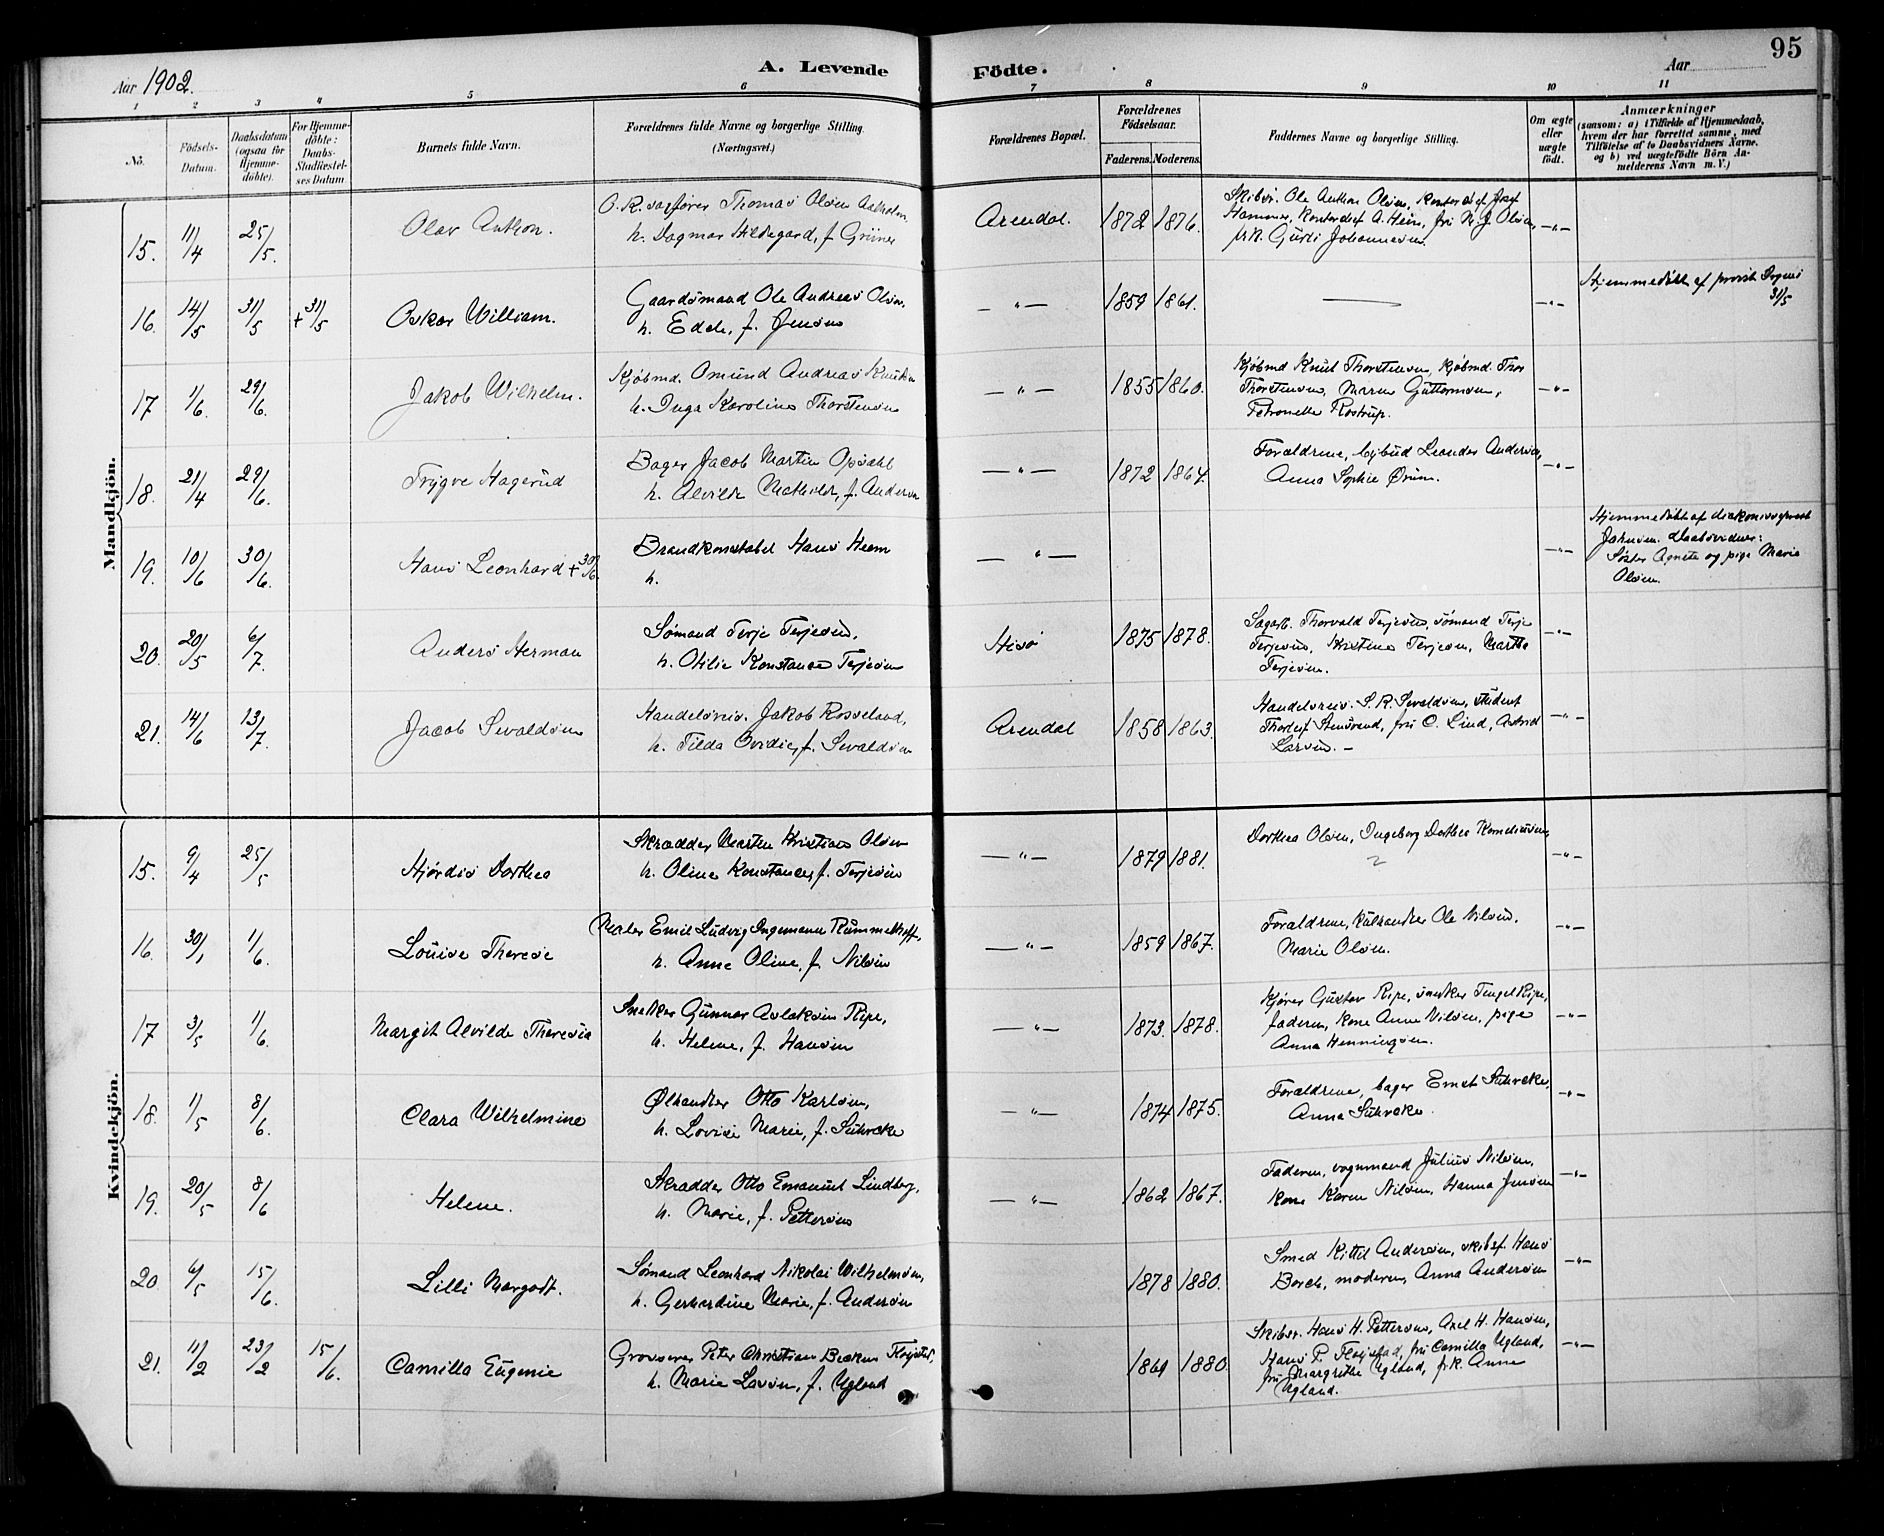 95
Aar 1902.
A. Levende Födte.
Aar
1 2 3 4 5 6 7 8 9 10 11
No.
Födsels-Datum.
Daabsdatum (ogsaa for Hjemme-döbte).
For Hjemme-döbte: Daabs-Stadfæstel-ses Datum
Barnets fulde Navn.
Forældrenes fulde Navne og borgerlige Stilling. (Næringsvei.)
Forældrenes Bopæl.
Forældrenes Födselsaar.
Faderens. Moderens.
Faddernes Navne og borgerlige Stilling.
Om ægte eller uægte födt.
Anmærkninger
(saasom: a) i Tilfælde af Hjemmedaab,
hvem der har forrettet samme, med
Tilföielse af to Daabsvidners Navne,
og b) ved uægtefödte Börn An-
melderens Navn m. V.)
Mandkjön.
15. 11/4 25/5. Olav Anthon. O.R.sagfører Thomas Olsen Aalholm
h. Dagmar Hildegard, f. Grüner
Arendal. 1872 1876.
Skibsr. Ole Anthon Olsen, Kontorchef Josef
Hammer, Kontorchef A. Hein, fru N. J. Olsen,
frk. Gusti Johannesen.
—"—
16. 14/5 31/5 + 31/5 Oskar William. Gaardsmand Ole Andreas Olsen.
h. Edele, f. Jensen
—"— 1859 1861. — —"—
Hjemmedøbt af provst Sogns
31/5
17 1/6. 29/6. Jakob Wilhelm. Kjøbmd. Omund Andreas Knutsen
h. Inga Karoline Thorstensen
—"— 1855 1860.
Kjøbmd Knut Thorstensen, kjøbmd. Thor
Thorstensen, Maren Guttormsen,
Petronelle Rostrup.
—"—
18. 21/4 29/6. Trygve Hagerud Bager Jacob Martin Opsahl
h. Alvilde Mathilde, f. Andersen
—"— 1872 1864.
Forældrene, bybud Leander Andersen,
Anna Sophie Ørum.
—"—
19. 10/6 30/6. Hans Leonhard + 30/6. Brandkonstabel Hans Heem
h.
—"— —"—
Hjemmedøbt af diakonissepræst
Johnsen. Daabsvidner:
Søster Agnete og pige Marie
Olsen.
20. 20/5 6/7. Anders Herman Sømand Terje Terjesen,
h. Otilie Konstance Terjesen
Hisø 1875 1878.
Sagarb. Thorvald Terjesen, sømand Terje
Terjesen, Kristine Terjesen, Marthe
Terjesen.
—"—
21. 14/6 13/7. Jacob Sevaldsen Handelsreis. Jakob Rosseland,
h. Tilda Ovidie, f. Sevaldsen
Arendal 1858 1863.
Handelsreis. S. R. Sevaldsen, student
Thorleif Stensrand, fru C. Lind, Astrid
Larsen. —
—"—
Kvindekjön.
15. 9/4 25/5 Hjørdis Dorthea Skrædder Marten Kristian Olsen
h. Oline Konstance, f. Terjesen
—"— 1879 1881.
Dorthea Olsen, Ingeborg Dorthea Korneliusen,
—"—
16. 30/1 1/6. Louise Therese Maler Emil Ludvig Ingemann Rummelhoff,
h. Anne Oline, f. Nilsen
—"— 1859 1867.
Forældrene, kulhandler Ole Nilsen.
Marie Olsen.
—"—
17 3/5 1/6. Margit Alvilde Theresia Snekker Gunnar Aslaksen Ripe,
h. Helene, f. Hansen
—"— 1873. 1878.
Kjører Gustav Ripe, snekker Tengel Ripe,
faderen, kone Anne Nilsen, pige
Anna Henningsen.
—"—
18. 1/5 8/6. Clara Wilhelmine Ølhandler Otto Karlsen,
h. Lovise Marie, f. Suhrcke
—"— 1874 1875.
Forældrene, bager Ernst Suhrcke
Anna Suhrcke.
—"—
19. 20/5 8/6 Helene. Skrædder Otto Emanuel Lindberg,
h. Marie, f. Pettersen
—"— 1862 1867.
Faderen, vognmand Julius Nilsen,
Kone Karen Nilsen, Hanna Jensen
—"—
20. 6/5 15/6. Lilli Margodt. Sømand Leonhard Nikolai Wilhelmsen,
h. Gerhardine Marie, f. Andersen
1878 1880.
Smed Kittil Andersen, skibsf. Hans
Borch, moderen, Anna Andersen
—"—
21. 11/2 23/2 15/6. Camilla Eugenie Grosserer Peter Christian Backer Fløjstad,
h. Marie Lovise, f. Ugland
1864 1880
Skibsr. Hans H. Pettersen, Axel H. Hansen,
Hans P. Fløjstad, fru Camilla Ugland,
fru Margrethe Ugland, frk. Anne
Ugland.
—"—